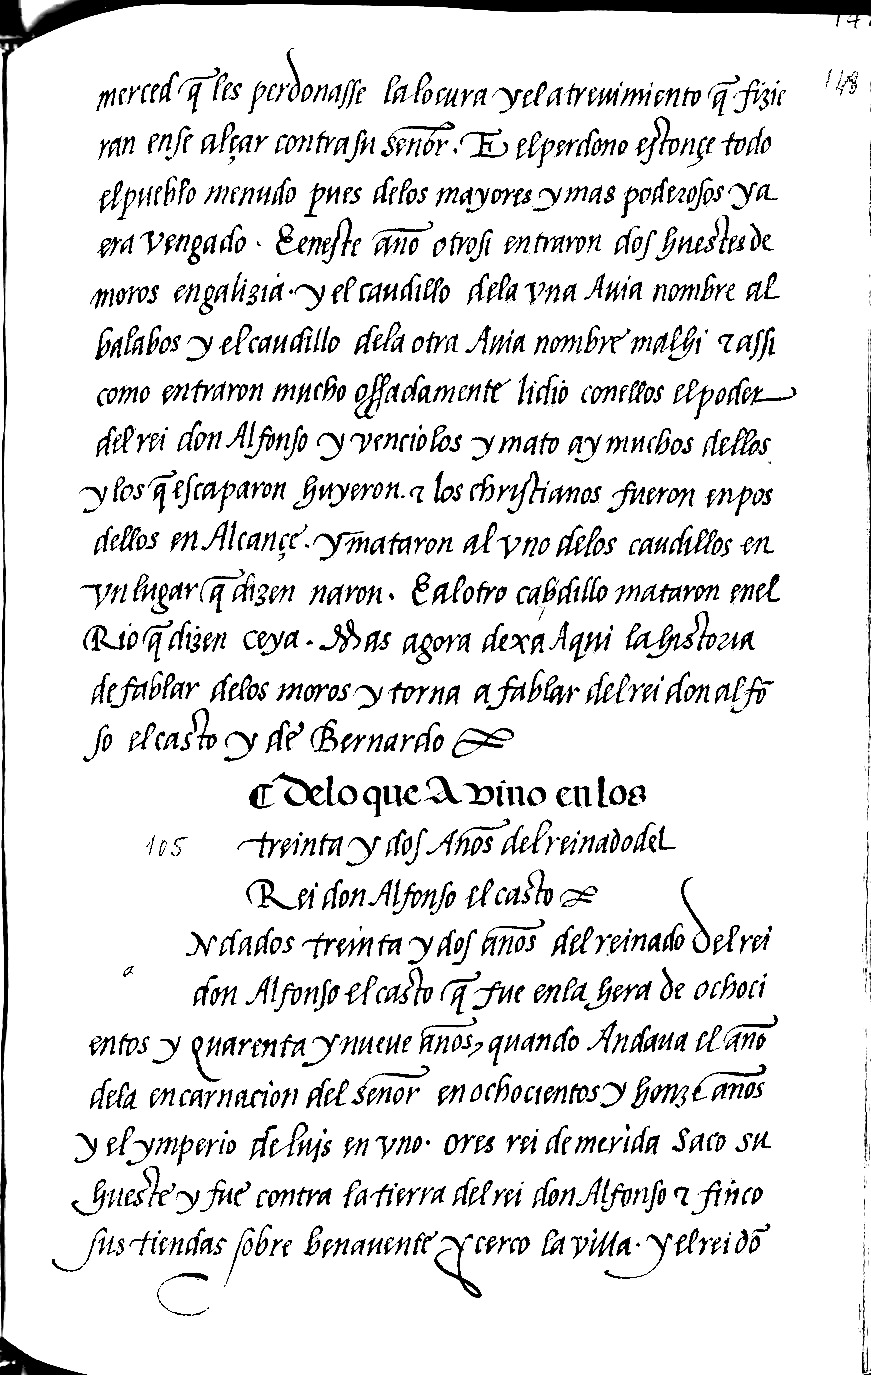 148
merced q̃ les perdonasse la locura y el atrevimiento q̃ fizie
ran en se alçar contra su señor. E el perdono estonçe todo
el pueblo menudo pues delos mayores y mas poderosos ya
era vengado. E en este año otrosi entraron dos huestes de
moros en galizia. y el caudillo dela vna Auia nombre al
balabos y el caudillo dela otra Auia nombre malhi τ assi
como entraron mucho ossadamente lidio con ellos el poder
del rei don Alfonso y vencio los y mato ay muchos dellos
y los q̃ escaparon huyeron. τ los christianos fueron en pos
dellos en Alcançe. y mataron al vno delos caudillos en
vn lugar q̃ dizen naron. E al otro cabdillo mataron en el
Rio q̃ dizen ceya. Mas agora dexa Aqui la historia
de fablar delos moros y torna a fablar del rei don alfõ
so el casto y de Bernardo
¶ Delo que A vino en los
105 treinta y dos Años del reinado del
Rei don Alfonso el casto
Ndados treinta y dos años del reinado del rei
a don Alfonso el casto q̃ fue en la hera de ochoci
entos y quarenta y nueue años, quando Andaua el año
dela encarnacion del señor en ochocientos y honze años
y el ymperio de luis en vno. ores rei de merida saco su
hueste y fue contra la tierra del rei don Alfonso τ finco
sus tiendas sobre benauente y cerco la villa. y el rei dõ